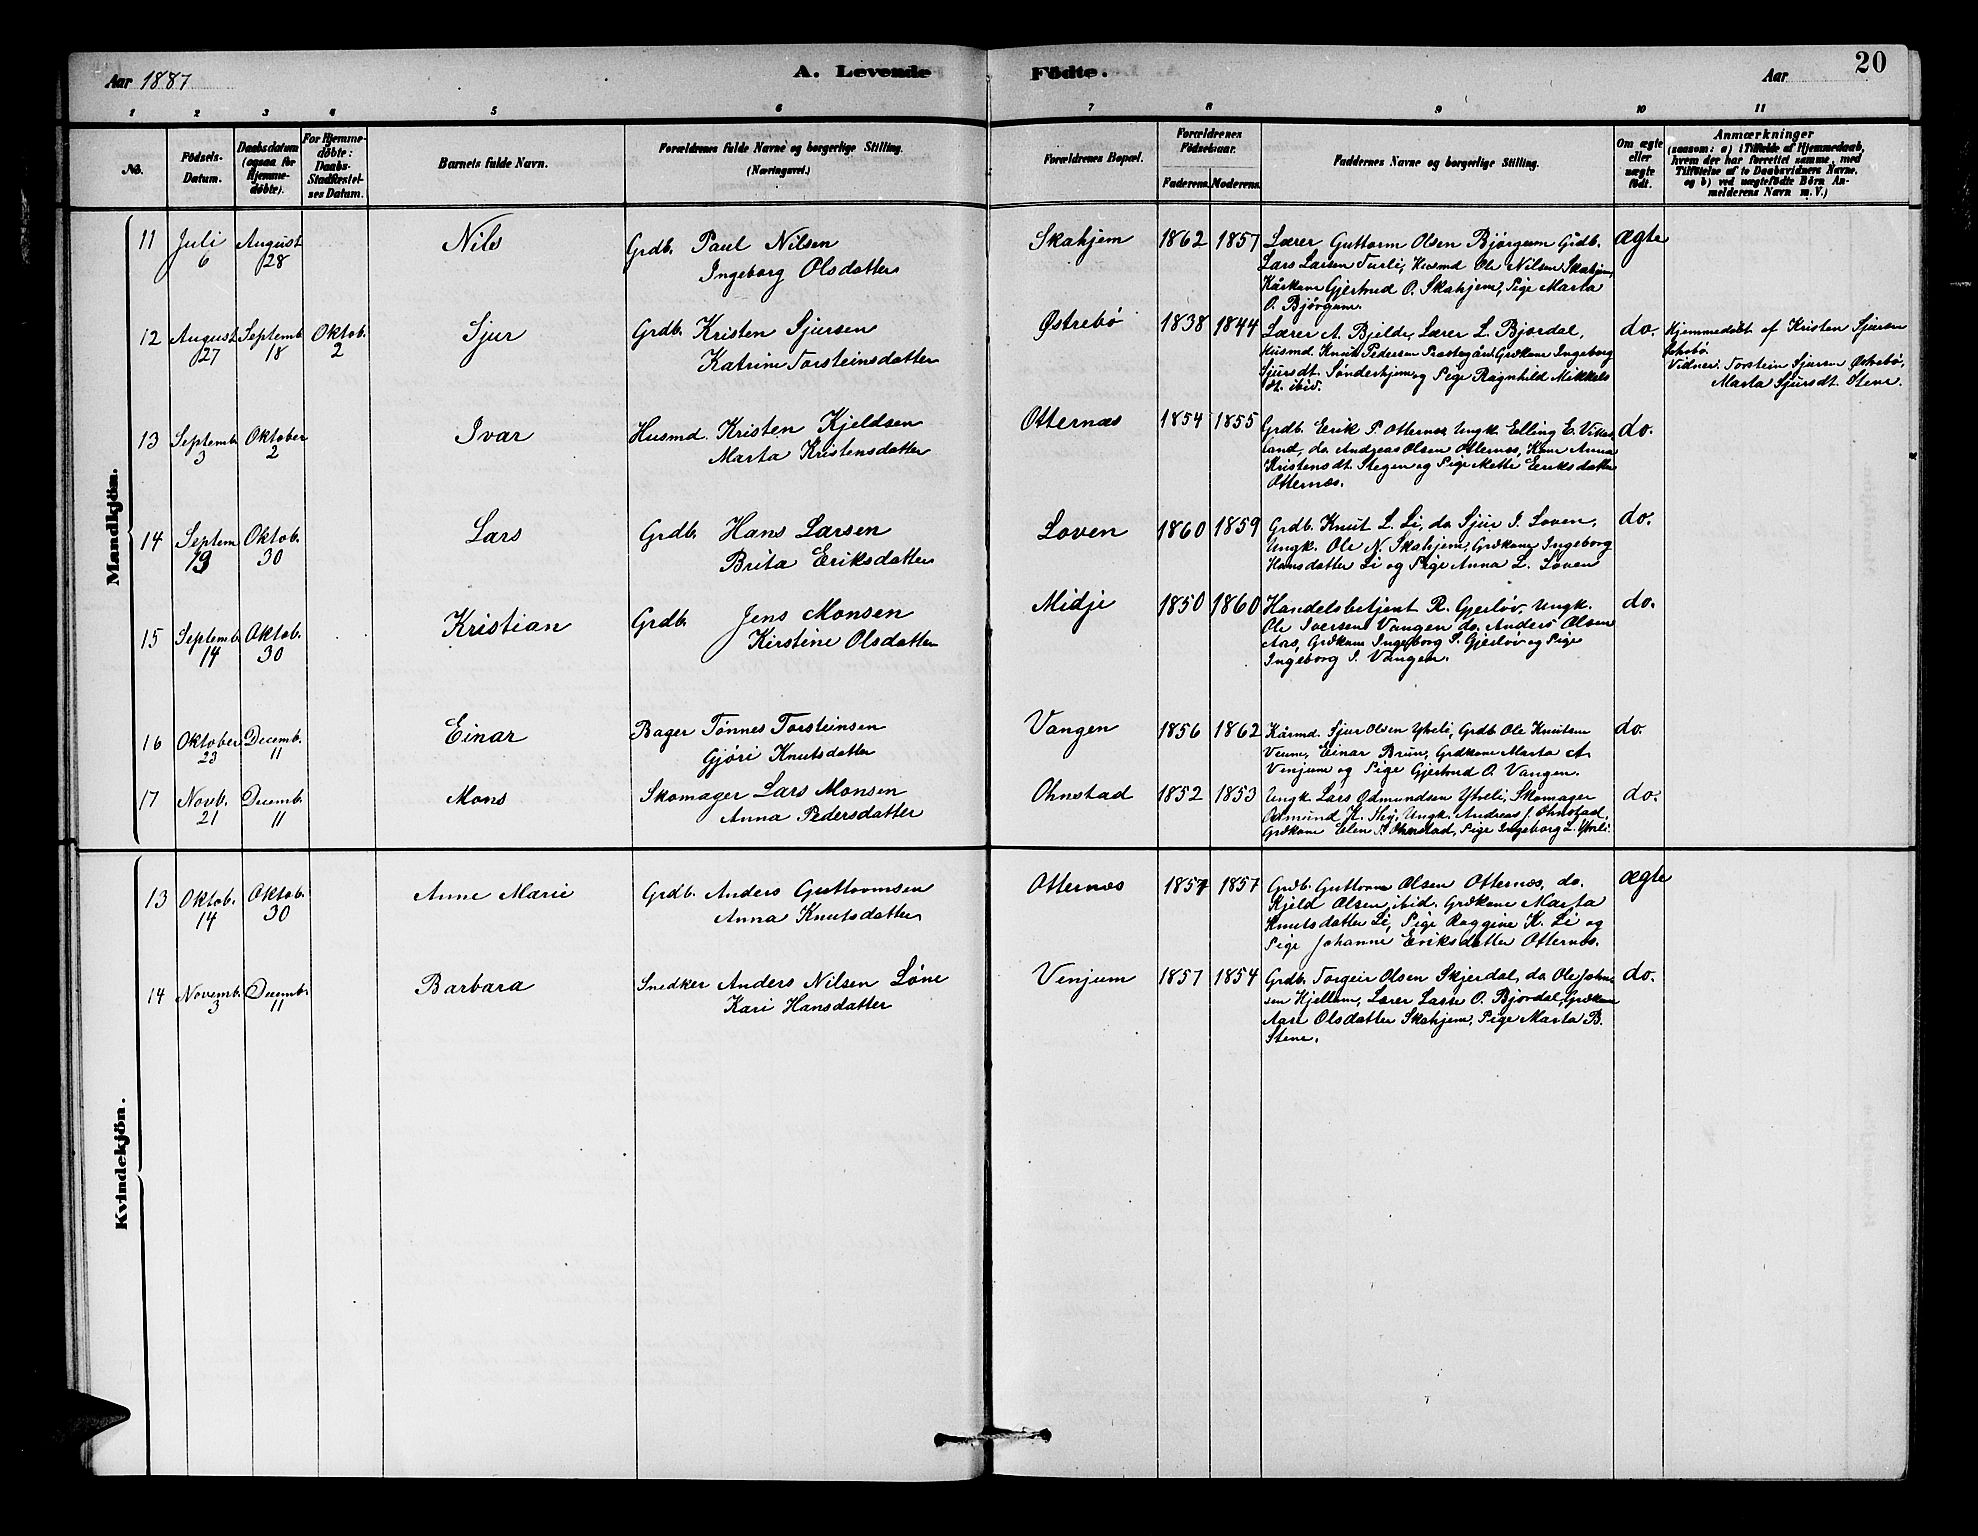 Aar 1887
A. Levende Födte.
Aar
20
1 2 3 4 5 6 7 8 9 10 11
No.
Födsels-Datum.
Daabsdatum (ogsaa for Hjemme-döbte).
For Hjemme-döbte: Daabs-Stadfæstel-ses Datum.
Barnets fulde Navn.
Forældrenes fulde Navne og borgerlige Stilling. (Næringsvei.)
Forældrenes Bopæl.
Forældrenes Födselsaar.
Faderens. Moderens.
Faddernes Navne og borgerlige Stilling.
Om ægte eller uægte födt.
Anmærkninger
(saasom: a) i Tilfælde af Hjemmedaab,
hvem der har forrettet samme, med
Tilföielse af to Daabsvidners Navne,
og b) ved uægtefödte Börn An-
melderens Navn m. V.)
Mandkjön.
11 Juli 6 August 28 Nils Grdb. Paul Nilsen
Ingeborg Olsdatter
Skahjem 1862 1857 Lærer Guttorm Olsen Bjørgum Grdb.
Lars Larsen Turli, Husmd Ole Nilsen Skahjem,
Kårkone Gjertrud O. Skahjem, Pige Marta
O. Bjørgum.
ægte
12 August 27 Septemb 18 Oktob. 2 Sjur Grdb. Kristen Sjursen
Katrine Torsteinsdatter
Østrebø 1838 1844 Lærer A. Bjelde, Lærer L. Bjordal,
Husmd. Knut Pedersen Prestegård Grdkone Ingeborg
Sjursdt. Sønderhjem og Pige Ragnhild Mikkels
dt. ibid.
do. Hjemmedøbt af Kristen Sjursen
Østrebø.
Vidner: Torstein Sjursen Østrebø,
Marta Sjursdt. Stene.
13 Septemb 3 Oktober 2 Ivar Husmd. Kristen Kjeldsen
Marta Kristensdatter
Otternæs 1854 1855 Grdb. Erik P. Otternæs Ungk. Elling E. Vikes
land, do. Andreas Olsen Otternæs, Kone Anna
Kristensdt. Stegen og Pige Mette Eriksdatter
Otternæs.
do.
14 Septem 19 Oktob. 30 Lars Grdb. Hans Larsen
Brita Eriksdatter
Loven 1860 1859 Grdb. Knut L. Li, do Sjur J. Loven,
Ungk. Ole N. Skahjem, Grdkone Ingeborg
Hansdatter Li og Pige Anna L. Loven
do.
15 Septemb 14 Oktob. 30 Kristian Grdb. Jens Monsen
Kirstine Olsdatter
Midje 1850 1860 Handelsbetjent R. Gjerløv, Ungk.
Ole Iversen Vangen do. Anders Olsen
Aas, Grdkone Ingeborg S. Gjerløv og Pige
Ingeborg I. Vangen.
do.
16 Oktober 23 Decemb. 11 Einar Bager Tønnes Torsteinsen
Gjøri Knutsdatter
Vangen 1856 1862 Kårmd. Sjur Olsen Ytreli, Grdb. Ole Knutsen
Veum, Einar Brun, Grdkone Marta A.
Venjum og Pige Gjertrud O. Vangen.
do.
17 Novb. 21 Decemb 11 Mons Skomager Lars Monsen
Anna Pedersdatter
Ohnstad 1852 1853 Ungk. Lars Odmundsen Ytreli, Skomager
Odmund H. Ungk. Andreas J Ohnstad,
Grdkone Elen P. Ohnstad, Pige Ingeborg L. Ytreli.
do.
Kvindekjön.
13 Oktob. 14 Oktob. 30 Anne Marie Grdb. Anders Guttormsen
Anna Knutsdatter
Otternæs 1857 1857 Grdb. Guttorm Olsen Otternæs, do.
Kjeld Olsen, ibid. Grdkone Marta
Knutsdatter Li, Pige Raggine K. Li og
Pige Johanne Eriksdatter Otternæs.
ægte
14 Novemb. 3 Decemb. 11 Barbara Snedker Anders Nilsen Løne
Kari Hansdatter
Venjum 1857 1854 Grdb. Torgeir Olsen Skjerdal, do Ole Johne
sen Hjellum, Lærer Lasse O. Bjordal, Grdkone
Aase Olsdatter Skahjem, Pige Marta B.
Stene.
do.